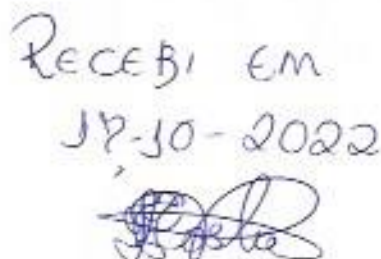 RECEBI EM
17-10-2022